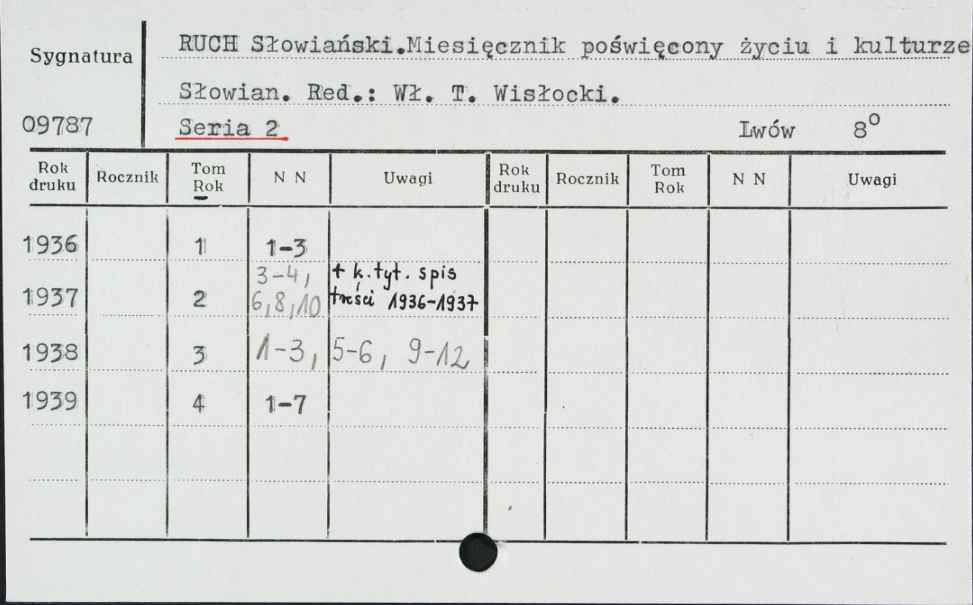 Sygnatura
RUCH Słowiański.Miesięcznik poświęcony życiu i kulturze
Słowian. Red.: Wł. T. Wisłocki.
09787
Seria 2
Lwów 8⁰
Rok druku Rocznik Tom Rok N N Uwagi Rok druku Rocznik Tom Rok N N Uwagi
1936 1 1-3
1937 2 3-4, 6,8,10 + k.tyt. spis treści 1936-1937
1938 3 1-3, 5-6, 9-12
1939 4 1-7